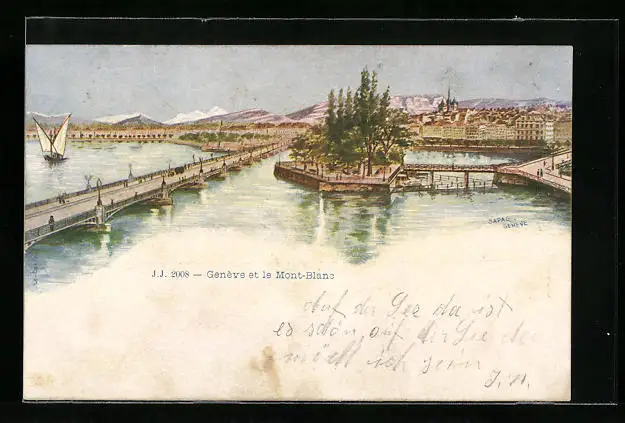 SAPAC
GENÈVE
J.J. 2008 — Genève et le Mont-Blanc
Auf der See da ist
es schön, auf der See da
möcht ich sein
J. M.